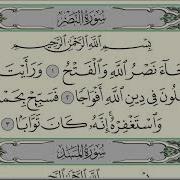 سُورَةُ النَّصْرِ
بِسْمِ اللَّهِ الرَّحْمَٰنِ الرَّحِيمِ
جَآءَ نَصْرُ اللَّهِ وَالْفَتْحُ ١ وَرَأَيْتَ
يَدْخُلُونَ فِي دِينِ اللَّهِ أَفْوَاجًا ٢ فَسَبِّحْ بِحَمْدِ
وَاسْتَغْفِرْهُ إِنَّهُ كَانَ تَوَّابًا ٣
سُورَةُ الْمَسَدِ